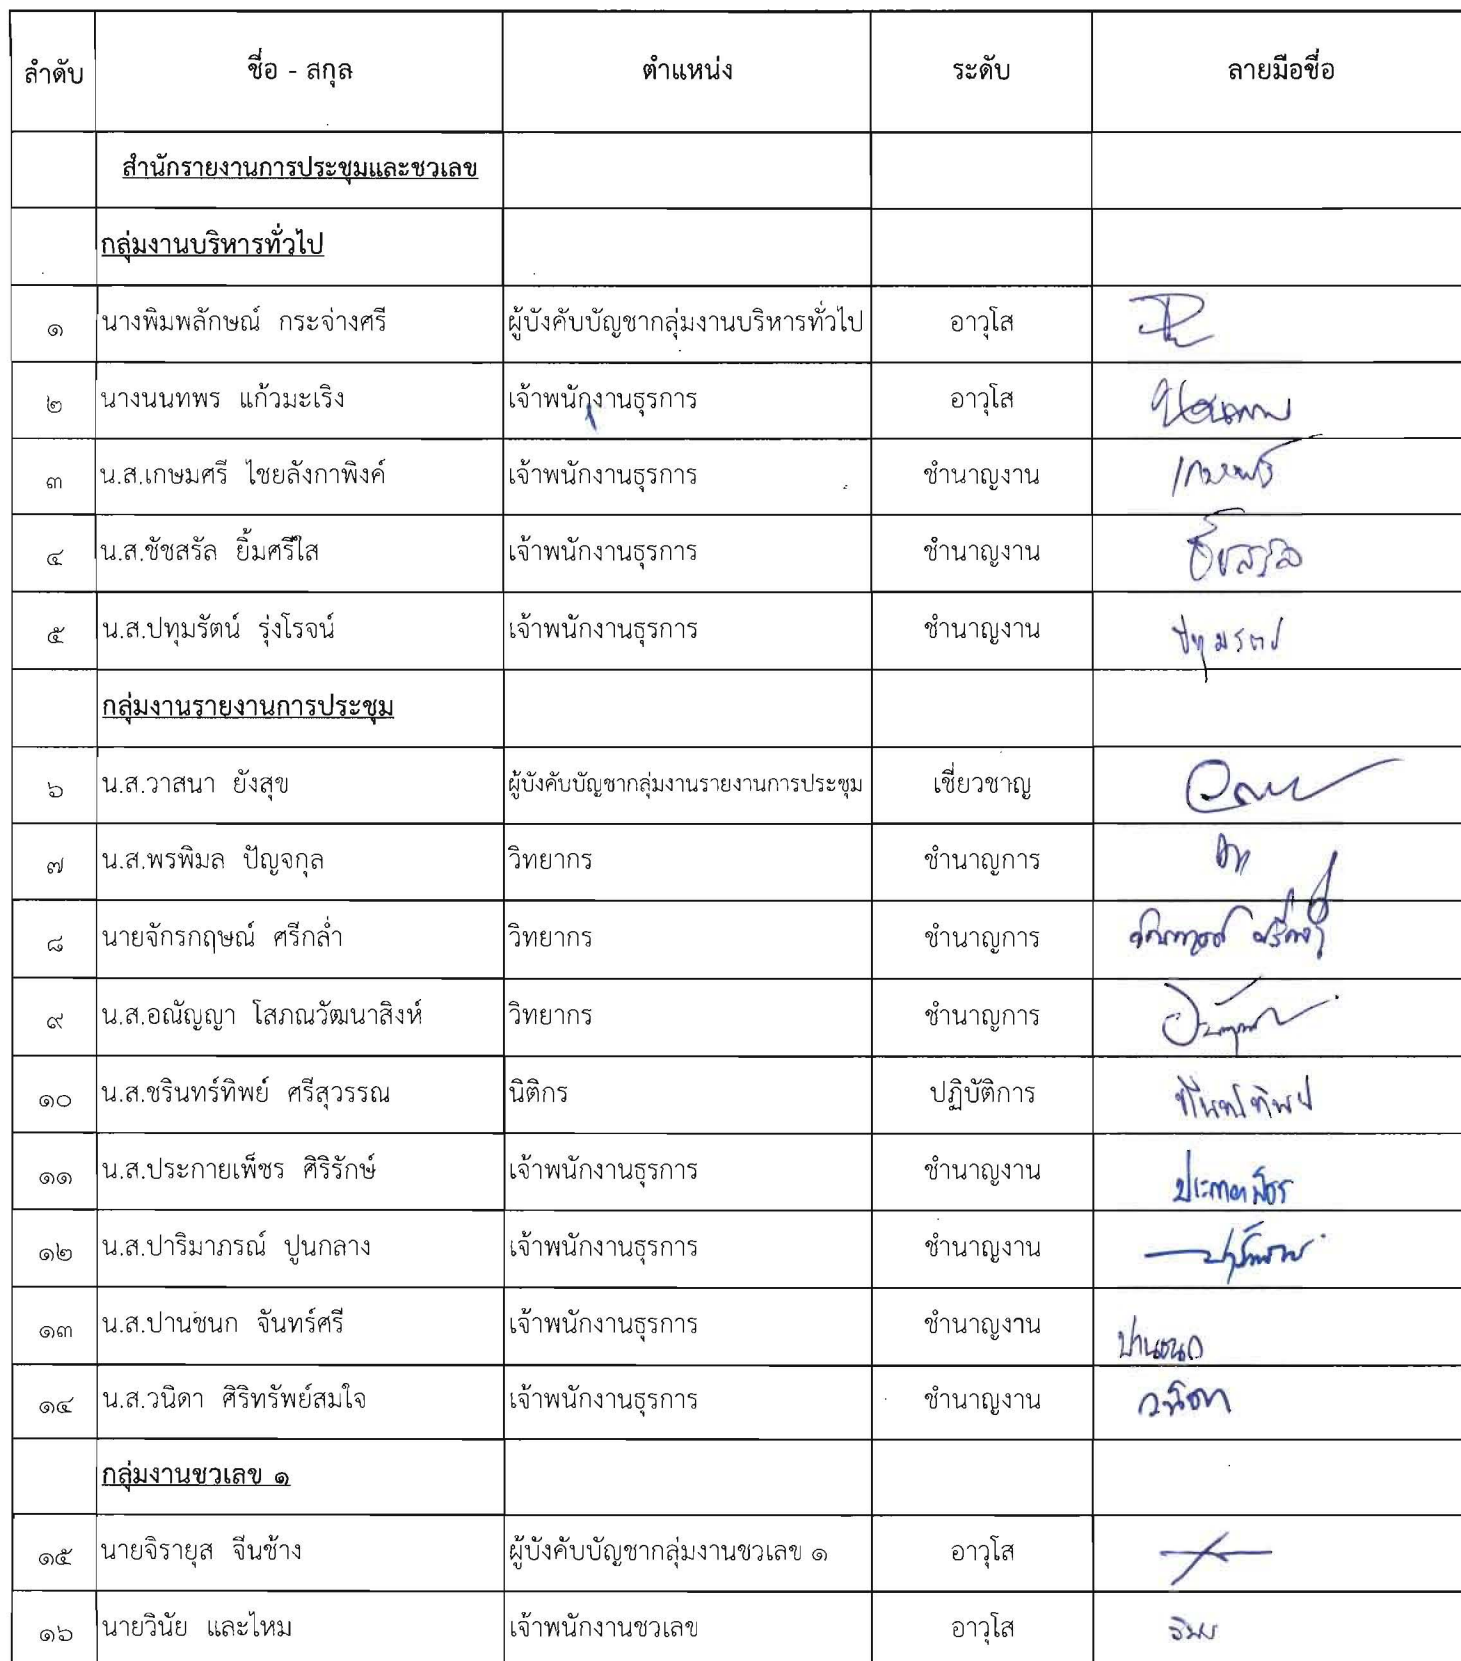 ลำดับ ชื่อ - สกุล ตำแหน่ง ระดับ ลายมือชื่อ
สำนักรายงานการประชุมและชวเลข
กลุ่มงานบริหารทั่วไป
๑ นางพิมพลักษณ์ กระจ่างศรี ผู้บังคับบัญชากลุ่มงานบริหารทั่วไป อาวุโส
๒ นางนนทพร แก้วมะเริง เจ้าพนักงานธุรการ อาวุโส
๓ น.ส.เกษมศรี ไชยลังกาพิงค์ เจ้าพนักงานธุรการ ชำนาญงาน
๔ น.ส.ชัชสรัล ยิ้มศรีใส เจ้าพนักงานธุรการ ชำนาญงาน ชัชสรัล
๕ น.ส.ปทุมรัตน์ รุ่งโรจน์ เจ้าพนักงานธุรการ ชำนาญงาน
กลุ่มงานรายงานการประชุม
๖ น.ส.วาสนา ยังสุข ผู้บังคับบัญชากลุ่มงานรายงานการประชุม เชี่ยวชาญ
๗ น.ส.พรพิมล ปัญจกุล วิทยากร ชำนาญการ
๘ นายจักรกฤษณ์ ศรีกล่ำ วิทยากร ชำนาญการ
๙ น.ส.อณัญญา โสภณวัฒนาสิงห์ วิทยากร ชำนาญการ
๑๐ น.ส.ชรินทร์ทิพย์ ศรีสุวรรณ นิติกร ปฏิบัติการ
๑๑ น.ส.ประกายเพ็ชร ศิริรักษ์ เจ้าพนักงานธุรการ ชำนาญงาน
๑๒ น.ส.ปาริมาภรณ์ ปูนกลาง เจ้าพนักงานธุรการ ชำนาญงาน
๑๓ น.ส.ปานชนก จันทร์ศรี เจ้าพนักงานธุรการ ชำนาญงาน ปานชนก
๑๔ น.ส.วนิดา ศิริทรัพย์สมใจ เจ้าพนักงานธุรการ ชำนาญงาน วนิดา
กลุ่มงานชวเลข ๑
๑๕ นายจิรายุส จีนช้าง ผู้บังคับบัญชากลุ่มงานชวเลข ๑ อาวุโส
๑๖ นายวินัย และไหม เจ้าพนักงานชวเลข อาวุโส